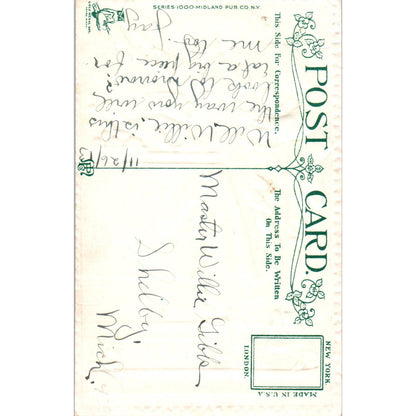 SERIES-1000-MIDLAND PUB. CO. N.Y.
POST CARD.
This Side For Correspondence.
The Address To Be Written
On This Side.
NEW YORK
LONDON
MADE IN U.S.A.
11/26/
Well Willie, is this
the way you will
look to-morrow?
Eat a big piece for
me too.
Jay
Master Willie Gibbs
Shelby,
Mich.